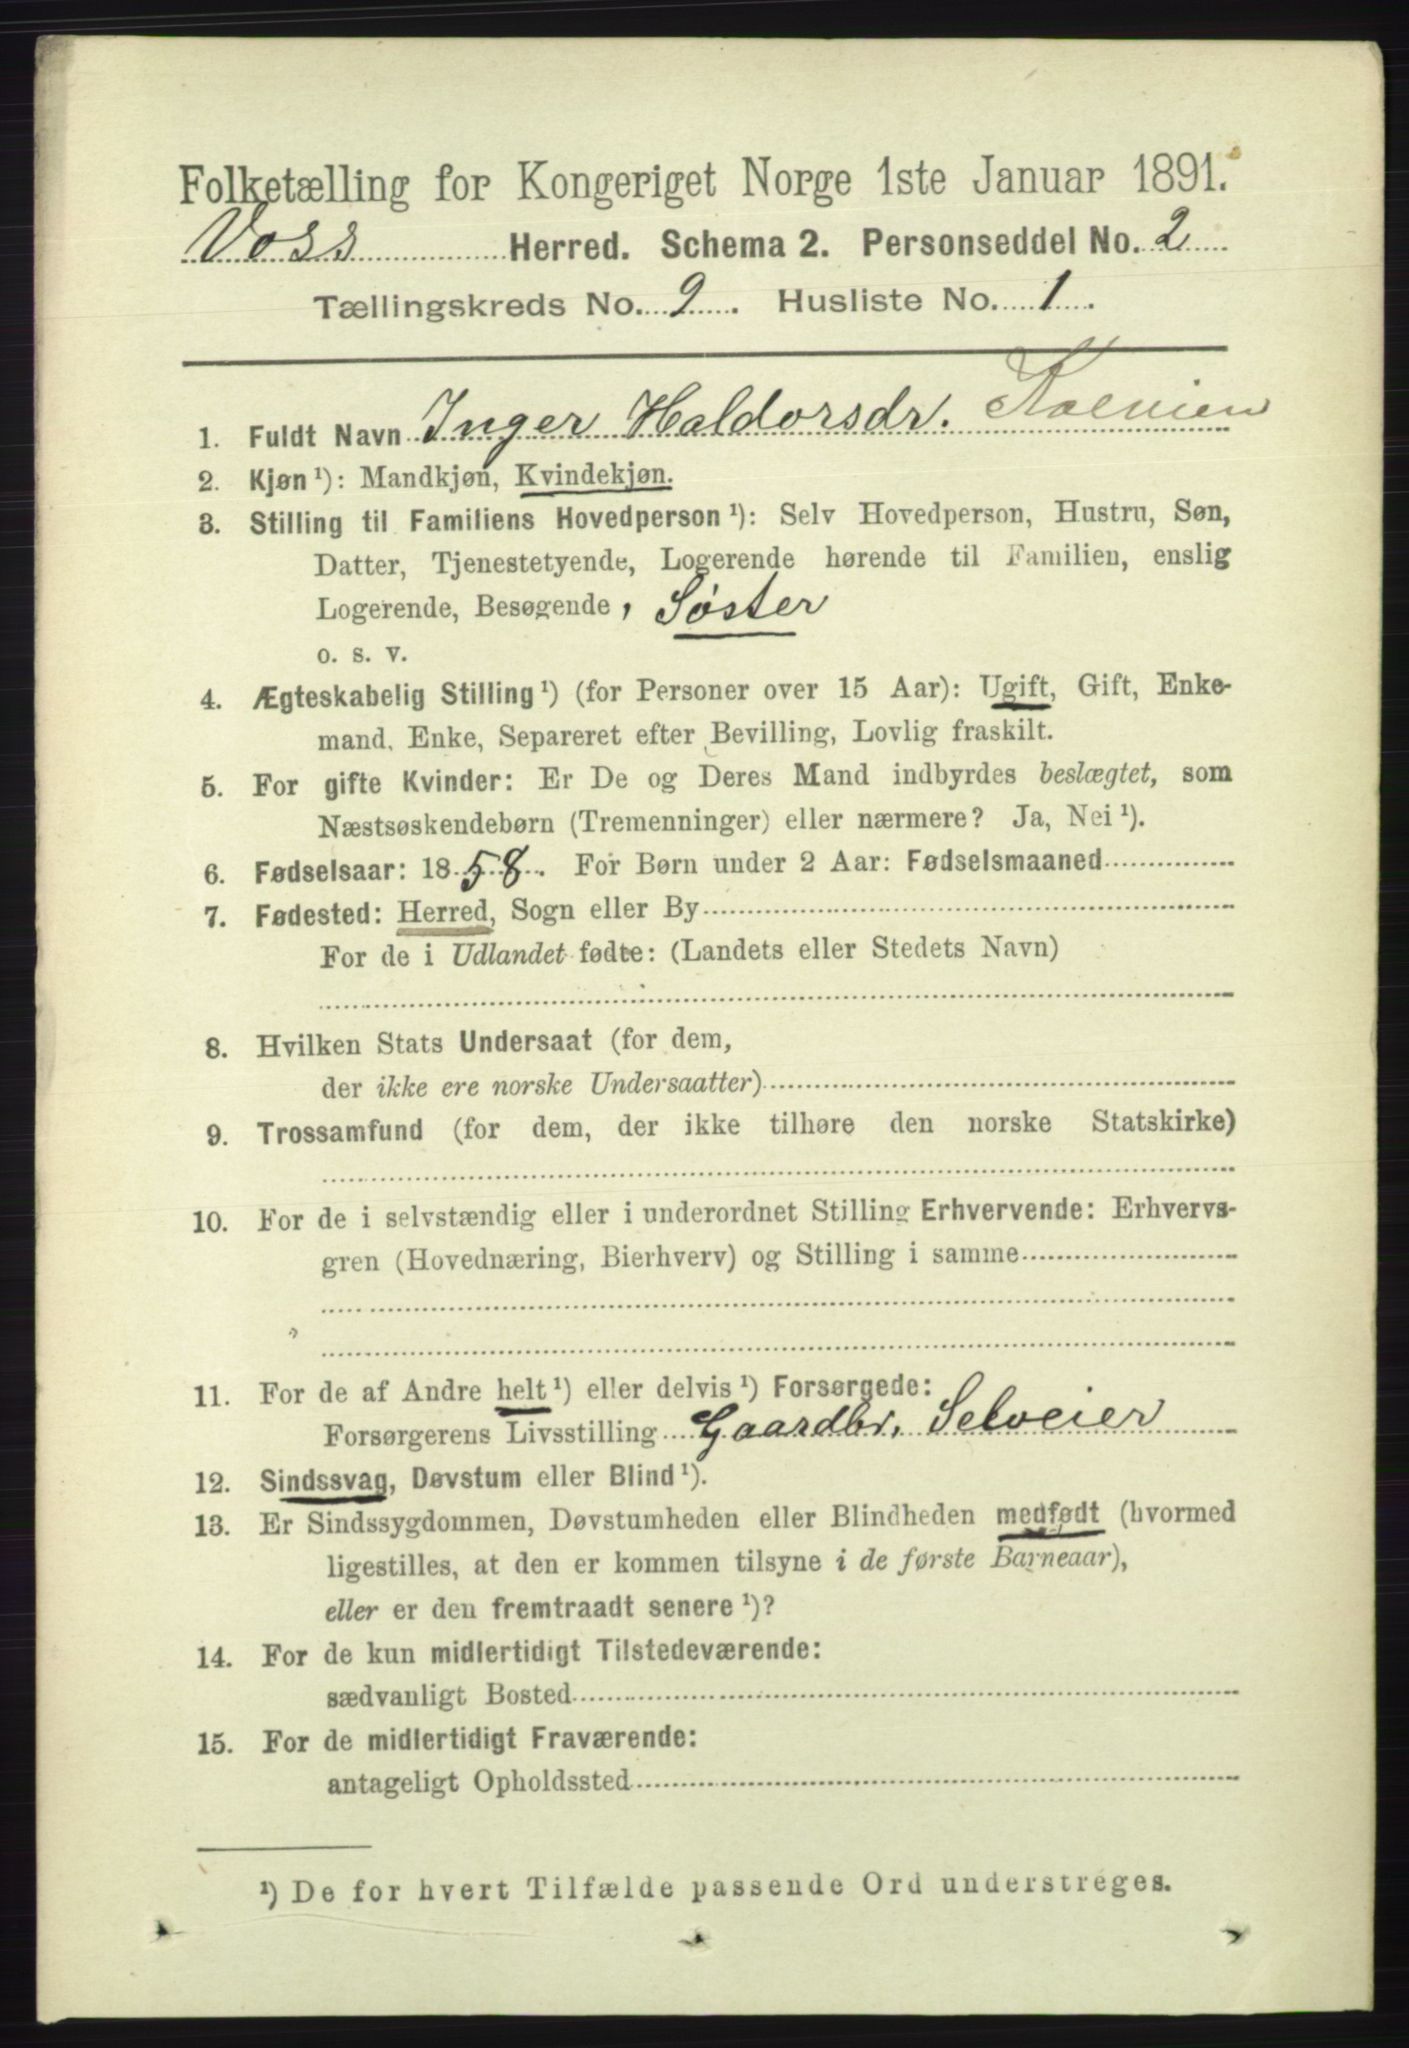 Folketælling for Kongeriget Norge 1ste Januar 1891.
Voss Herred. Schema 2. Personseddel No. 2
Tællingskreds No. 9. Husliste No. 1.
1. Fuldt Navn Inger Haldorsdr.
2. Kjøn ¹): Mandkjøn, Kvindekjøn.
3. Stilling til Familiens Hovedperson ¹): Selv Hovedperson, Hustru, Søn,
Datter, Tjenestetyende, Logerende hørende til Familien, enslig
Logerende, Besøgende, Søster
o. s. v.
4. Ægteskabelig Stilling ¹) (for Personer over 15 Aar): Ugift, Gift, Enke-
mand, Enke, Separeret efter Bevilling, Lovlig fraskilt.
5. For gifte Kvinder: Er De og Deres Mand indbyrdes beslægtet, som
Næstsøskendebørn (Tremenninger) eller nærmere? Ja, Nei ¹).
6. Fødselsaar: 1858. For Børn under 2 Aar: Fødselsmaaned
7. Fødested: Herred, Sogn eller By
For de i Udlandet fødte: (Landets eller Stedets Navn)
8. Hvilken Stats Undersaat (for dem,
der ikke ere norske Undersaatter)
9. Trossamfund (for dem, der ikke tilhøre den norske Statskirke)
10. For de i selvstændig eller i underordnet Stilling Erhvervende: Erhvervs-
gren (Hovednæring, Bierhverv) og Stilling i samme
11. For de af Andre helt ¹) eller delvis ¹) Forsørgede:
Forsørgerens Livsstilling Gaardbr. Selveier
12. Sindssvag, Døvstum eller Blind ¹).
13. Er Sindssygdommen, Døvstumheden eller Blindheden medfødt (hvormed
ligestilles, at den er kommen tilsyne i de første Barneaar),
eller er den fremtraadt senere ¹)?
14. For de kun midlertidigt Tilstedeværende:
sædvanligt Bosted
15. For de midlertidigt Fraværende:
antageligt Opholdssted
¹) De for hvert Tilfælde passende Ord understreges.